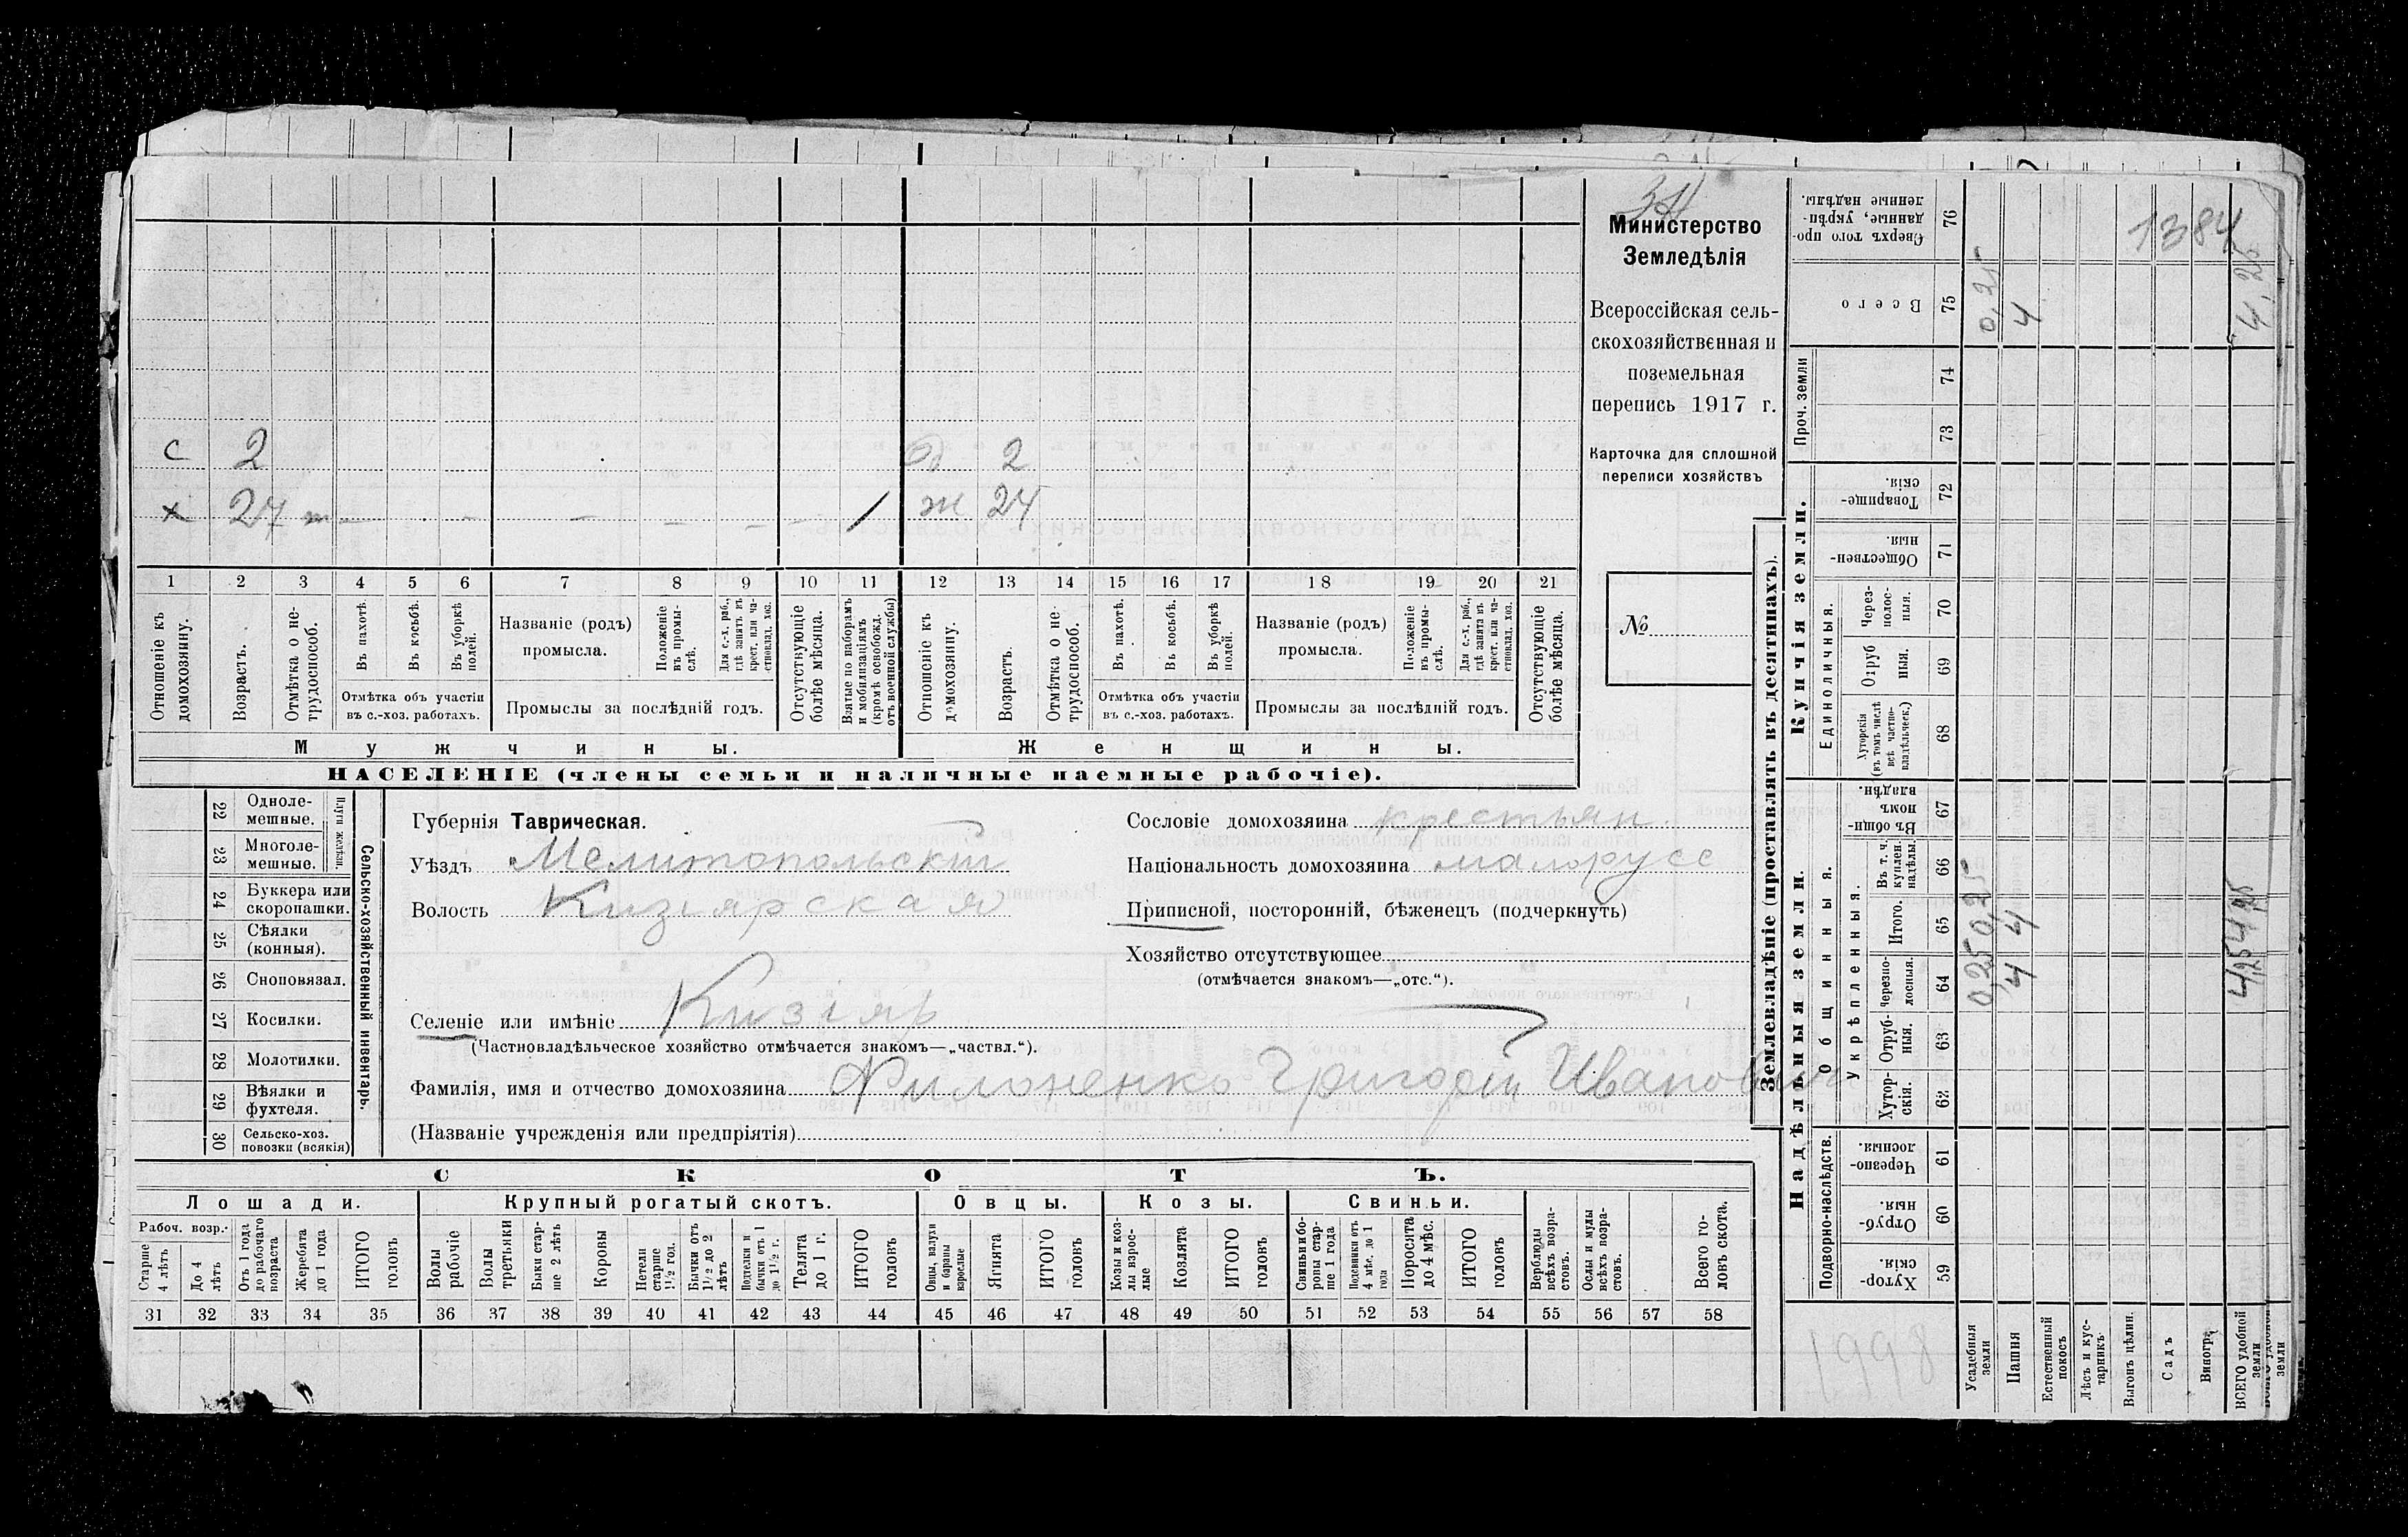 34
Министерство
Земледѣлія
Всероссійская сель-
скохозяйственная и
поземельная
перепись 1917 г.
Карточка для сплошной
переписи хозяйствъ
№
с 2 2
х 27 — — — — — — / ж 24
1 2 3 4 5 6 7 8 9 10 11 12 13 14 15 16 17 18 19 20 21
Отношеніе къ
домохозяину.
Возрастъ.
Отмѣтка о не-
трудоспособ.
Въ пахотѣ.
Въ косьбѣ.
Въ уборкѣ
полей.
Отмѣтка объ участіи
въ с.-хоз. работахъ.
Названіе (родъ)
промысла.
Положеніе
въ промы-
слѣ.
Для с.-х. раб.,
гдѣ занятъ въ
крест. или ча-
стновлад. хоз.
Промыслы за послѣдній годъ.
Отсутствующіе
болѣе мѣсяца.
Взятые по наборамъ
и мобилизаціямъ
(кромѣ освобожд.
отъ военной службы)
Отношеніе къ
домохозяину.
Возрастъ.
Отмѣтка о не-
трудоспособ.
Въ пахотѣ.
Въ косьбѣ.
Въ уборкѣ
полей.
Отмѣтка объ участіи
въ с.-хоз. работахъ.
Названіе (родъ)
промысла.
Положеніе
въ промы-
слѣ.
Для с.-х. раб.,
гдѣ занята въ
крест. или ча-
стновлад. хоз.
Промыслы за послѣдній годъ.
Отсутствующіе
болѣе мѣсяца.
Мужчины.
Женщины.
НАСЕЛЕНІЕ (члены семьи и наличные наемные рабочіе).
22 Одноле-
мешные.
23 Многоле-
мешные.
24 Буккера или
скоропашки.
25 Сѣялки
(конныя).
26 Сноповязал.
27 Косилки.
28 Молотилки.
29 Вѣялки и
фухтеля.
30 Сельско-хоз.
повозки (всякія)
Плуги желѣзн.
Сельско-хозяйственный инвентарь.
Губернія Таврическая.
Уѣздъ Мелитопольскій
Волость Кизіярская
Селеніе или имѣніе Кизіяр
(Частновладѣльческое хозяйство отмѣчается знакомъ—„частвл.“).
Фамилія, имя и отчество домохозяина Филоненко Григорій Иванович
(Названіе учрежденія или предпріятія)
Сословіе домохозяина крестьян.
Національность домохозяина малорусс
Приписной, посторонній, бѣженецъ (подчеркнуть)
Хозяйство отсутствующее
(отмѣчается знакомъ—„отс.“).
СКОТЪ.
Лошади.
Крупный рогатый скотъ.
Овцы.
Козы.
Свиньи.
Рабоч. возр.
Старше
4 лѣтъ
До 4
лѣтъ
Отъ 1 года
до рабочаго
возраста
Жеребята
до 1 года
ИТОГО
головъ
Волы
рабочіе
Волы
третьяки
Быки стар-
ше 2 лѣтъ
Коровы
Нетели
старше
1½ год.
Бычки отъ
1½ до 2
лѣтъ
Подтелки и
бычки отъ 1
до 1½ г.
Телята
до 1 г.
ИТОГО
головъ
Овцы, валухи
и бараны
взрослые
Ягнята
ИТОГО
головъ
Козы и коз-
лы взрос-
лые
Козлята
ИТОГО
головъ
Свиньи и бо-
ровы стар-
ше 1 года
Подсвинки отъ
4 мѣс. до 1
года
Поросята
до 4 мѣс.
ИТОГО
головъ
Верблюды
всѣхъ возра-
стовъ.
Ослы и мулы
всѣхъ возра-
стовъ.
Всего го-
ловъ скота.
31 32 33 34 35 36 37 38 39 40 41 42 43 44 45 46 47 48 49 50 51 52 53 54 55 56 57 58
Землевладѣніе (проставлять въ десятинахъ).
Надѣльныя земли.
Купчія земли.
Проч. земли
Подворно-наслѣдств.
Общинныя.
Укрѣпленныя.
Единоличныя.
Сверхъ того про-
данные, укрѣп-
ленные надѣлы.
76
Всего
75 0,25 4 4,25
74
73
Товарище-
скія.
72
Обществен-
ныя.
71
Через-
полос-
ныя.
70
Отруб
ныя.
69
Хуторскія
(въ томъ числѣ
всѣ частно-
владѣльческ.)
68
Въ общи-
номъ
владѣн.
67
Въ т. ч.
куплен.
надѣлы.
66
Итого.
65 0,25 4 4,25
Черезпо-
лосныя.
64 0,25 4 4,25
Отруб-
ныя.
63
Хутор-
скія.
62
Черезпо-
лосныя
61
Отруб-
ныя.
60
Хутор-
скія.
59
1384
1998
Усадебныя
земли
Пашня
Естественный
покосъ
Лѣсъ и кус-
тарникъ
Выгонъ цѣлин.
Садъ
Виногр.
ВСЕГО удобной
земли
земли